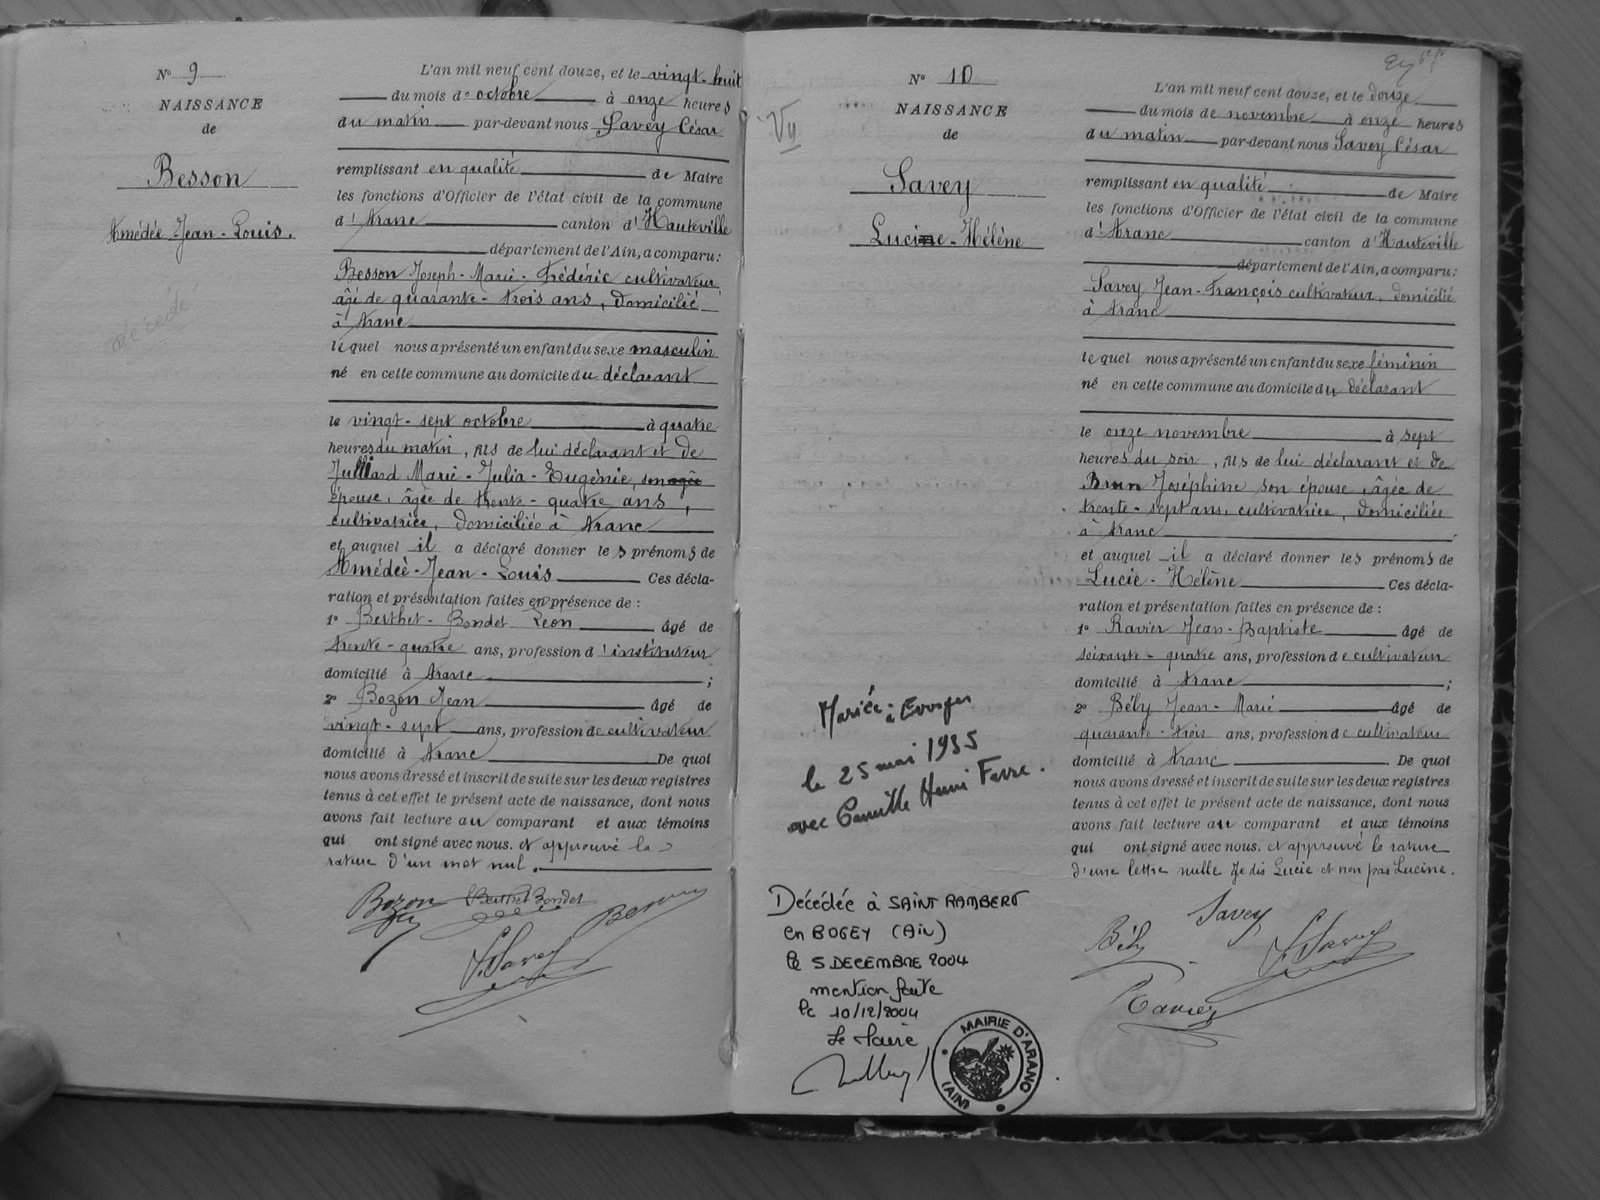 N° 9
NAISSANCE
de
Besson
Amédée Jean-Louis.
décédé
L'an mil neuf cent douze, et le vingt-huit
du mois de octobre à onze heures
du matin par-devant nous Savey César
remplissant en qualité de Maire
les fonctions d'Officier de l'état civil de la commune
d'Aranc canton d'Hauteville
département de l'Ain, a comparu:
Besson Joseph-Marie-Frédéric cultivateur
âgé de quarante-trois ans, domicilié
à Aranc
lequel nous a présenté un enfant du sexe masculin
né en cette commune au domicile du déclarant
le vingt-sept octobre à quatre
heures du matin, fils de lui déclarant et de
Julliard Marie-Julia-Eugénie, son âgée
épouse, âgée de trente-quatre ans,
cultivatrice, domiciliée à Aranc
et auquel il a déclaré donner les prénoms de
Amédée-Jean-Louis Ces décla-
ration et présentation faites en présence de :
1° Berthet-Bondet Léon âgé de
trente-quatre ans, profession d'instituteur
domicilié à Aranc ;
2° Bozon Jean âgé de
vingt-sept ans, profession de cultivateur
domicilié à Aranc De quoi
nous avons dressé et inscrit de suite sur les deux registres
tenus à cet effet le présent acte de naissance, dont nous
avons fait lecture au comparant et aux témoins
qui ont signé avec nous. et approuvé la
rature d'un mot nul.
Bozon Berthet Bondet Besson
Savey
N° 10
NAISSANCE
de
Savey
Lucine-Hélène
Vu
L'an mil neuf cent douze, et le douze
du mois de novembre à onze heures
du matin par-devant nous Savey César
remplissant en qualité de Maire
les fonctions d'Officier de l'état civil de la commune
d'Aranc canton d'Hauteville
département de l'Ain, a comparu:
Savey Jean-François cultivateur, domicilié
à Aranc
lequel nous a présenté un enfant du sexe féminin
né en cette commune au domicile du déclarant
le onze novembre à sept
heures du soir, fils de lui déclarant et de
Brun Joséphine son épouse, âgée de
trente-sept ans, cultivatrice, domiciliée
à Aranc
et auquel il a déclaré donner les prénoms de
Lucie-Hélène Ces décla-
ration et présentation faites en présence de :
1° Ravier Jean-Baptiste âgé de
soixante-quatre ans, profession de cultivateur
domicilié à Aranc ;
2° Bély Jean-Marie âgé de
quarante-trois ans, profession de cultivateur
domicilié à Aranc De quoi
nous avons dressé et inscrit de suite sur les deux registres
tenus à cet effet le présent acte de naissance, dont nous
avons fait lecture au comparant et aux témoins
qui ont signé avec nous. et approuvé la rature
d'une lettre nulle Je dis Lucie et non pas Lucine.
Bély Savey Savey
Ravier
Mariée à Evosges
le 25 mai 1935
avec Camille Henri Favre.
Décédée à SAINT RAMBERT
en BUGEY (Ain)
le 5 DECEMBRE 2004
mention faite
le 10/12/2004
Le Maire
MAIRIE D'ARANC
(AIN)